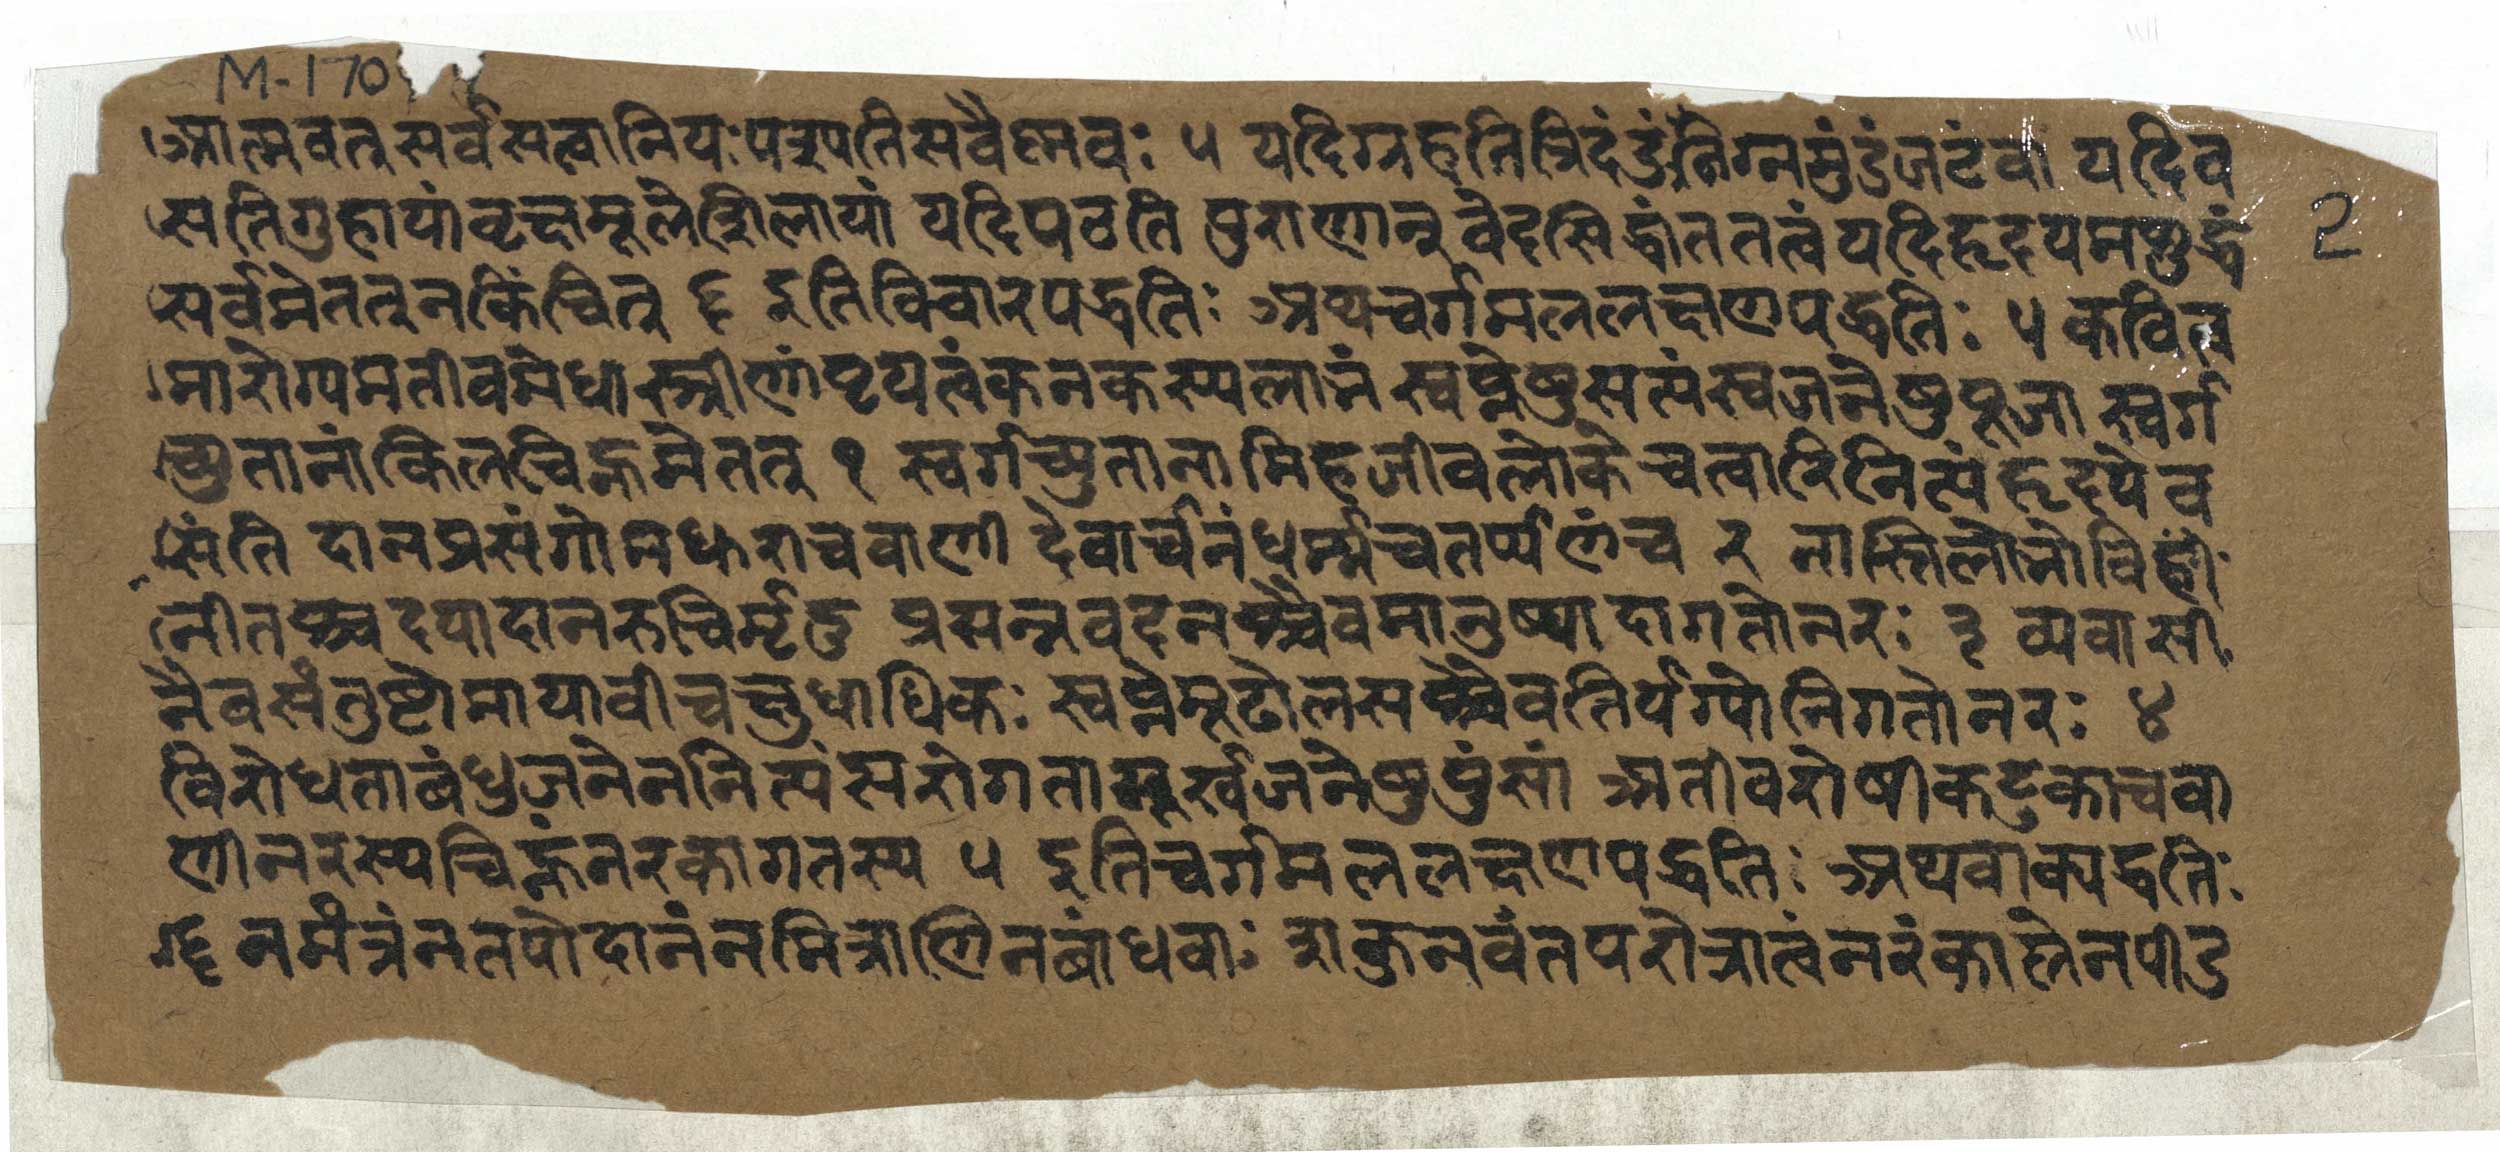 M-170
आत्मवत्सर्वसत्वानियःपश्यतिसवैष्णवः ५ यदिग्नहतित्रिदंडंनग्नमुंडंजटंवा यदिव
सतिगुहायांवृक्षमूलेशिलायां यदिपठति पुराणान् वेदसिद्धांततत्वंयदिहृदयमशुद्धं
सर्वमेतत्नकिंचित् ६ इतिविचारपद्धतिः अथचर्गमललक्षणपद्धतिः ५ कवित्व
मारोग्यमतीवमेधास्त्रीणांपृयत्वंकनकस्यलाभं स्वप्नेषुसत्यंस्वजनेषुपूजा स्वर्ग
च्युतानांकिलचिह्नमेतत् १ स्वर्गच्युतानामिहजीवलोकेचत्वारिनित्यंहृदयेव
संति दानप्रसंगोमधुराचवाणी देवार्चनंधर्म्मचतर्प्पणंच २ नास्तिलोभोवि
नीतश्च दयादानरुचिर्मृदु प्रसन्नवदनश्चैवमानुष्यादागतोनरः ३ व्यवासी
नैवसंतुष्टोमायावीचक्षुधाधिकः स्वप्नेमूढोलसश्चैवतिर्यग्योनिगतोनरः ४
विरोधताबंधुजनेननित्यंसरोगतामूर्खजनेषुपुंसां अतीवरोषीकटुकाचवा
णीनरस्यचिह्नंनरकागतस्य ५ इतिचर्गमललक्षणपद्धतिः अथवाक्यद्धतिः
नमंत्रंनतपोदानंनमित्राणिनबांधवाः शकुनवंतपरोत्रात्वंनरंकालेनपीड
2